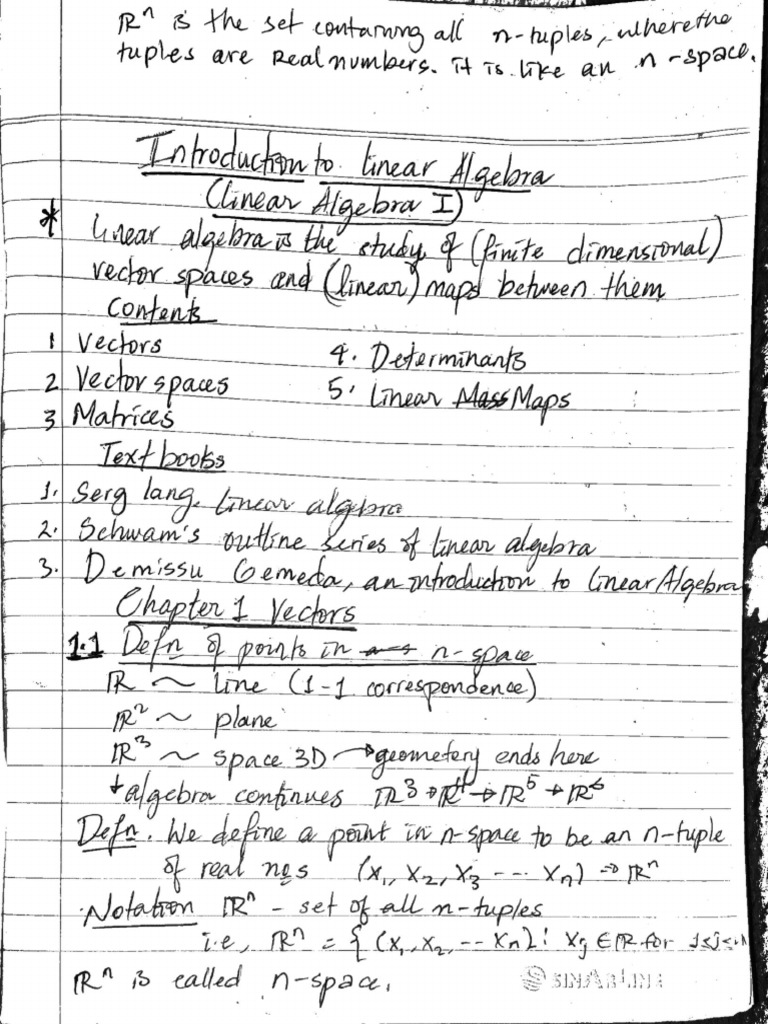 ℝⁿ is the set containing all n-tuples, where the
tuples are Real numbers. it is like an n-space.
Introduction to linear Algebra
(Linear Algebra I)
* linear algebra is the study of (finite dimensional)
vector spaces and (linear) maps between them
Contents
1 Vectors
2 Vector spaces
3 Matrices
4. Determinants
5. linear Mass Maps
Textbooks
1. Serg lang. linear algebra
2. Schwam's outline series of linear algebra
3. Demissu Gemeda, an introduction to linear Algebra
Chapter 1 Vectors
1.1 Defn of points in n-space
ℝ ~ line (1-1 correspondence)
ℝ² ~ plane
ℝ³ ~ space 3D → geometery ends here
+ algebra continues ℝ³ → ℝ⁴ → ℝ⁵ → ℝ⁶
Defn. We define a point in n-space to be an n-tuple
of real nos (x₁, x₂, x₃ --- xₙ) → ℝⁿ
Notation ℝⁿ - set of all n-tuples
i.e, ℝⁿ = { (x₁, x₂, -- xₙ) : xⱼ ∈ ℝ for 1≤j≤n
ℝⁿ is called n-space.
SINARLINE